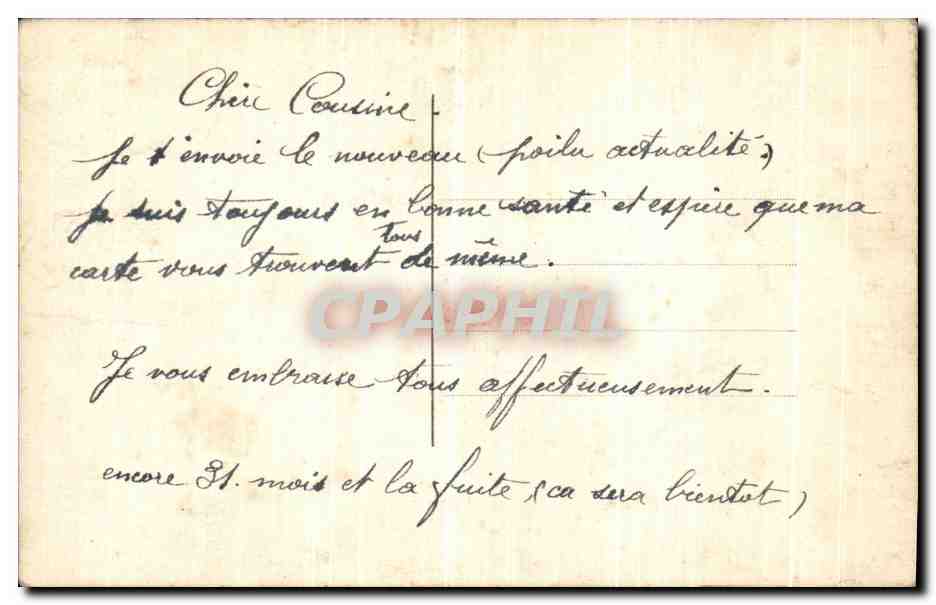 Chère Cousine.
Je t'envoie le nouveau (poilu actualité.)
je suis toujours en bonne santé et espère que ma
carte vous trouvent tous de même.
CPAPHIL
Je vous embrasse tous affectueusement.
encore 31. mois et la fuite, (ca sera bientot)